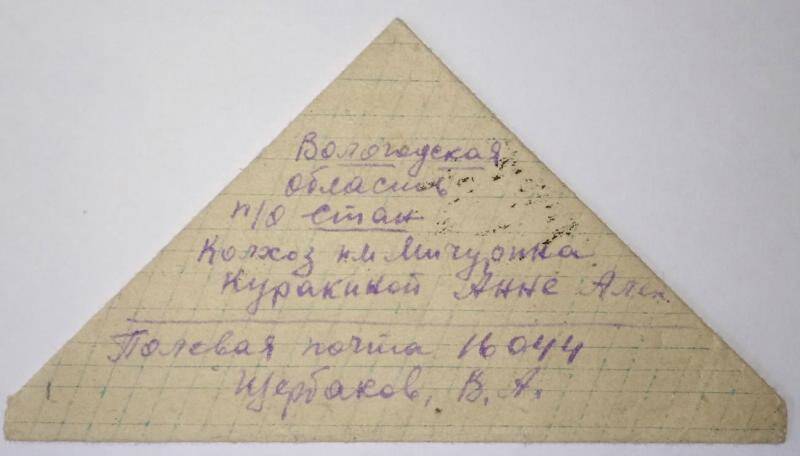 Вологодская
область
п/о Стан
Колхоз им Мичурина
Куракиной Анне Алек.
Полевая почта 16044
Щербаков, В. А.